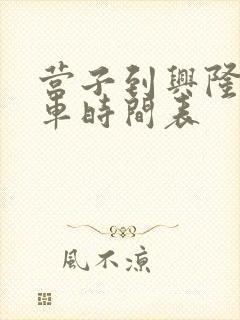 营子到興隆
車時間表
風不涼